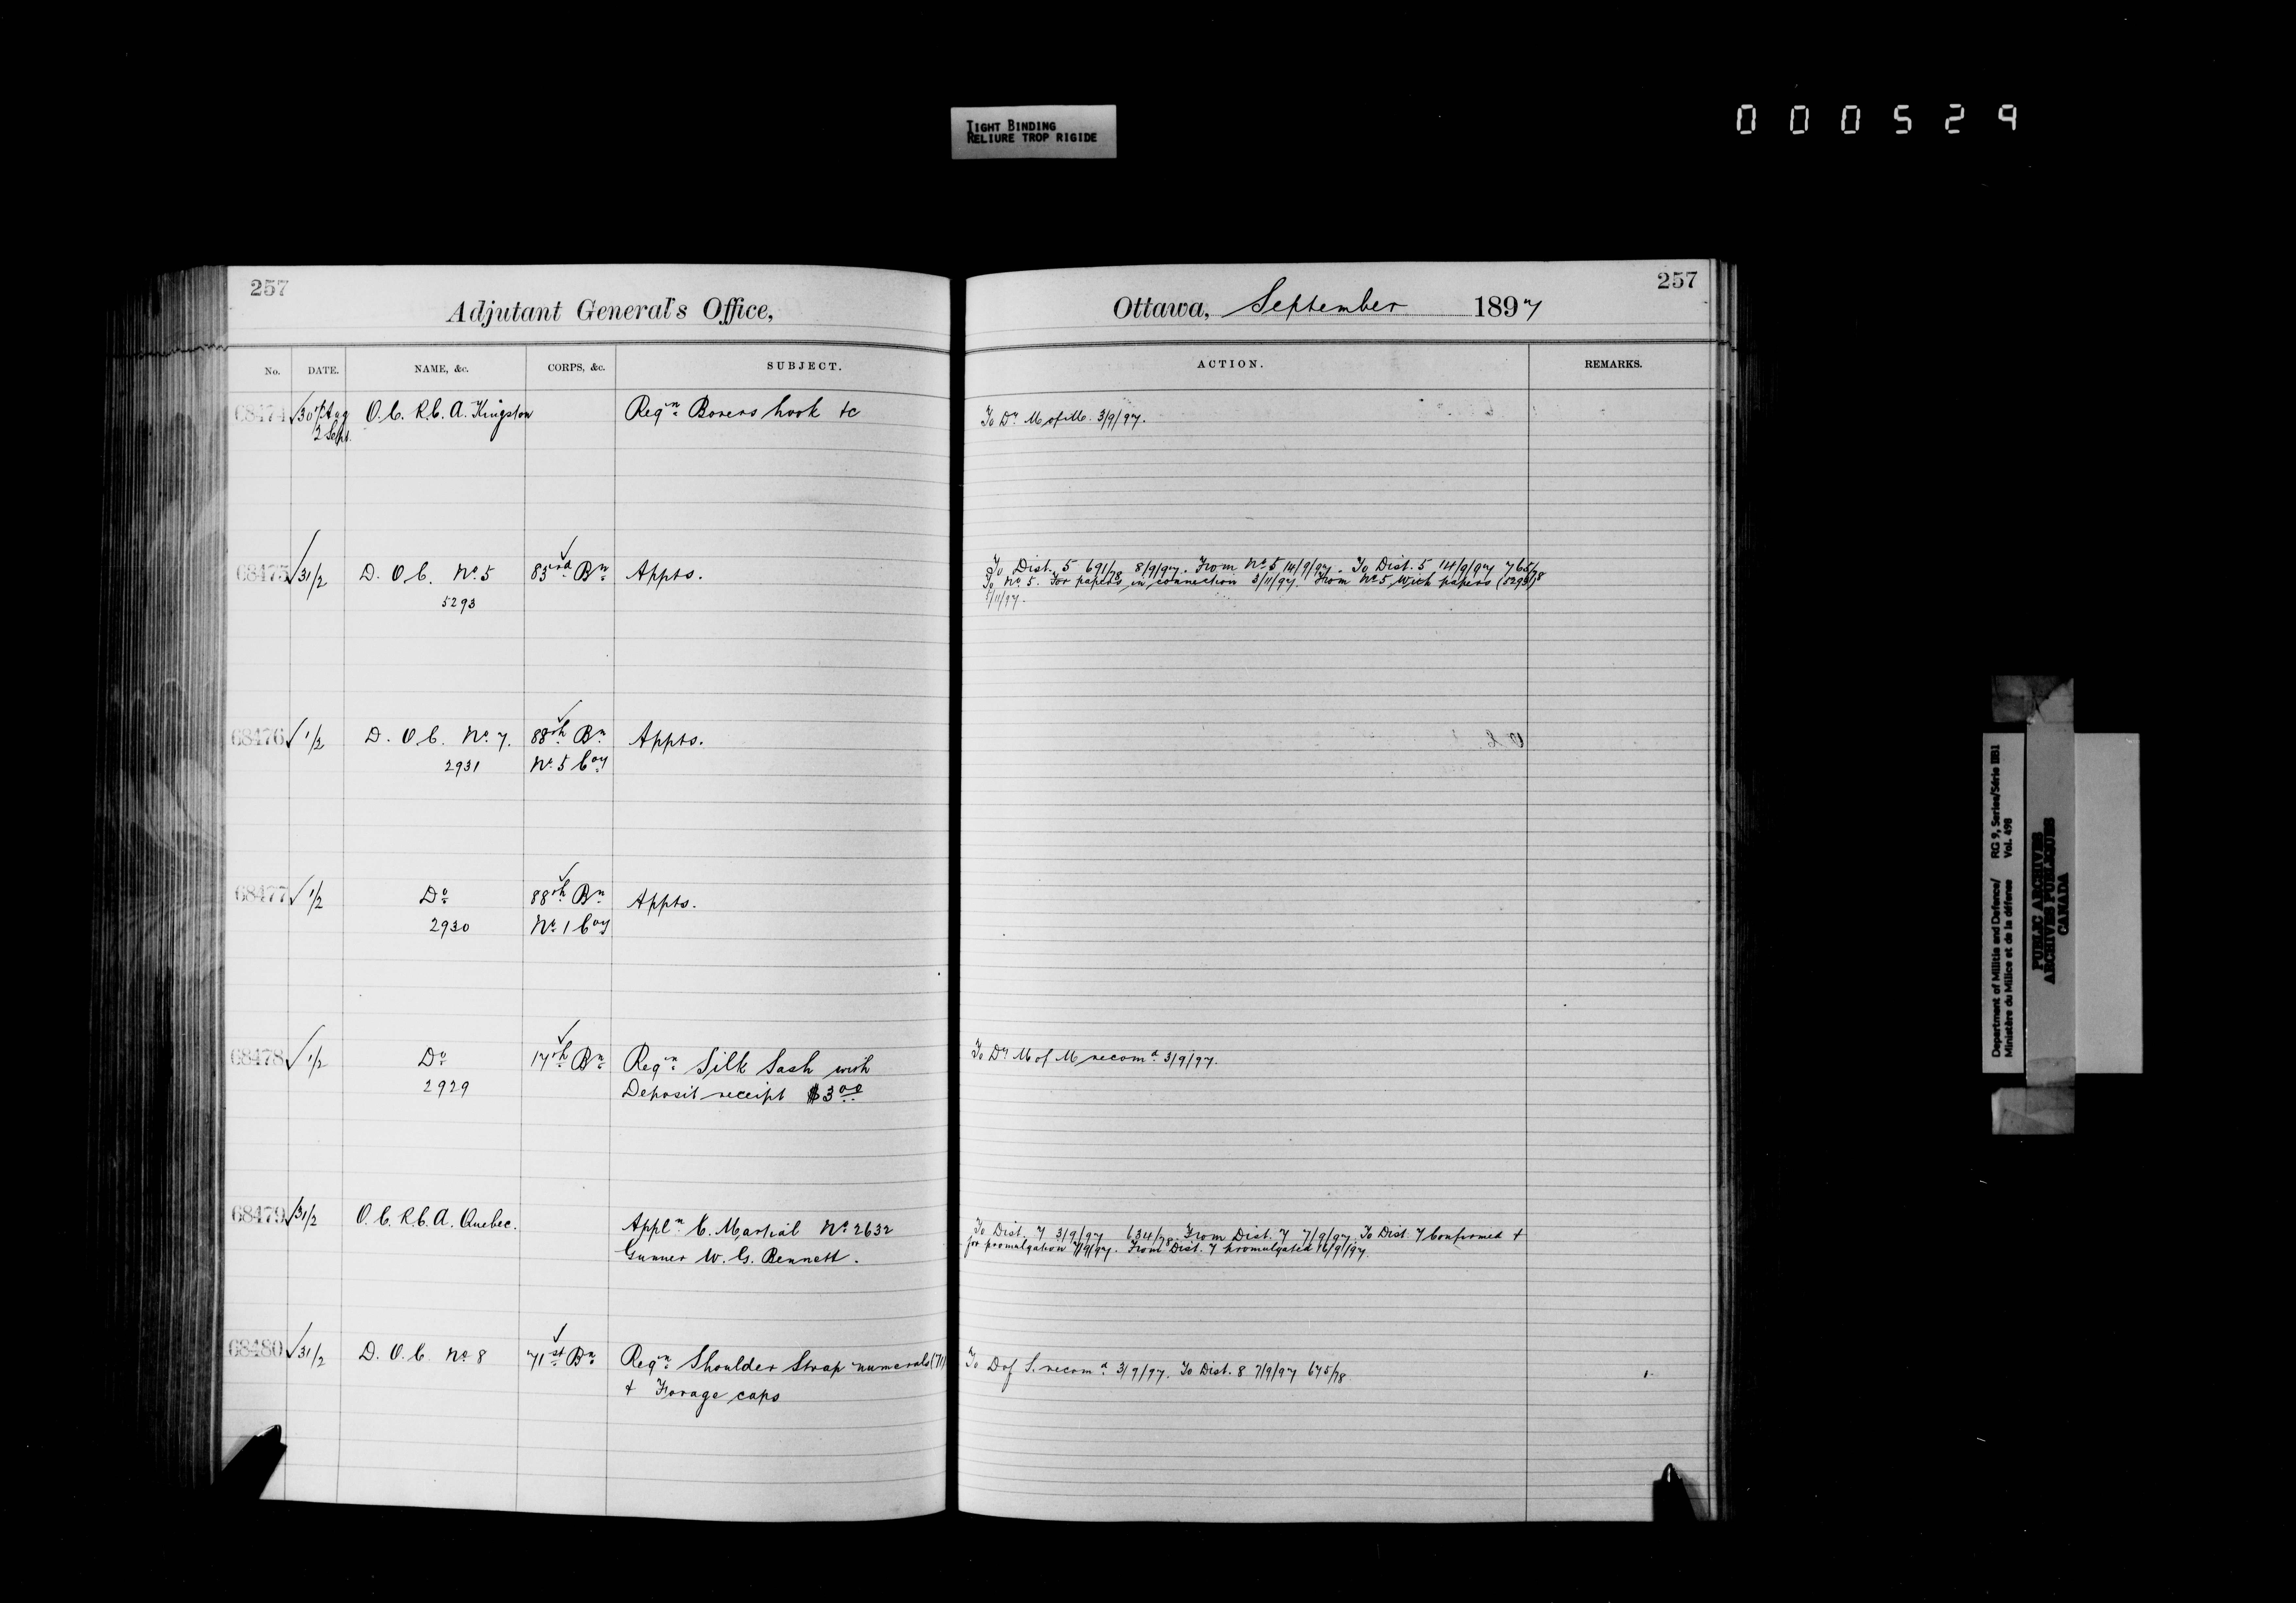 TIGHT BINDING
RELIURE TROP RIGIDE
000529
257
Adjutant General's Office,
No. DATE. NAME, &c. CORPS, &c. SUBJECT.
68474 30th Aug O.C. R.C.A. Kingston Reqn Borers hook &c
2 Sept.
68475 31/2 D.O.C. No 5 83rd Bn Appts.
5293
68476 1/2 D.O.C. No 7. 88th Bn Appts.
2931 No 5 Coy
68477 1/2 Do 88th Bn Appts.
2930 No 1 Coy
68478 1/2 Do 17th Bn Reqn Silk Sash with
2929 Deposit receipt $3.00
68479 31/2 O.C. R.C.A. Quebec. Appln C. Martial No 2632
Gunner W. G. Bennett.
68480 31/2 D.O.C. No 8 71st Bn Reqn Shoulder Strap numerals (71)
& Forage caps
257
Ottawa, September 1897
ACTION. REMARKS.
To Dy M of M. 3/9/97.
To Dist. 5 691/78 8/9/97. From No 5 14/9/97. To Dist. 5 14/9/97 765/78
To No 5. For papers in connection 3/11/97. From No 5 with papers (5293)
5/11/97.
To Dy M of M recomd 3/9/97.
To Dist. 7 3/9/97 634/78. From Dist. 7 7/9/97. To Dist. 7 Confirmed &
for promulgation 7/9/97. From Dist. 7 promulgated 16/9/97.
To D of S. recomd 3/9/97. To Dist. 8 7/9/97 675/78
Department of Militia and Defence/ RG 9, Series/Série IIB1
Ministère du Milice et de la défense Vol. 498
PUBLIC ARCHIVES
ARCHIVES PUBLIQUES
CANADA